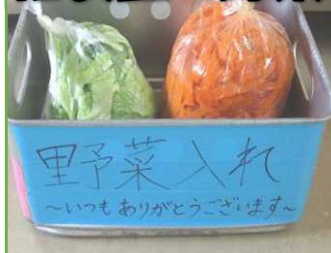 野菜入れ
～いつもありがとうございます～